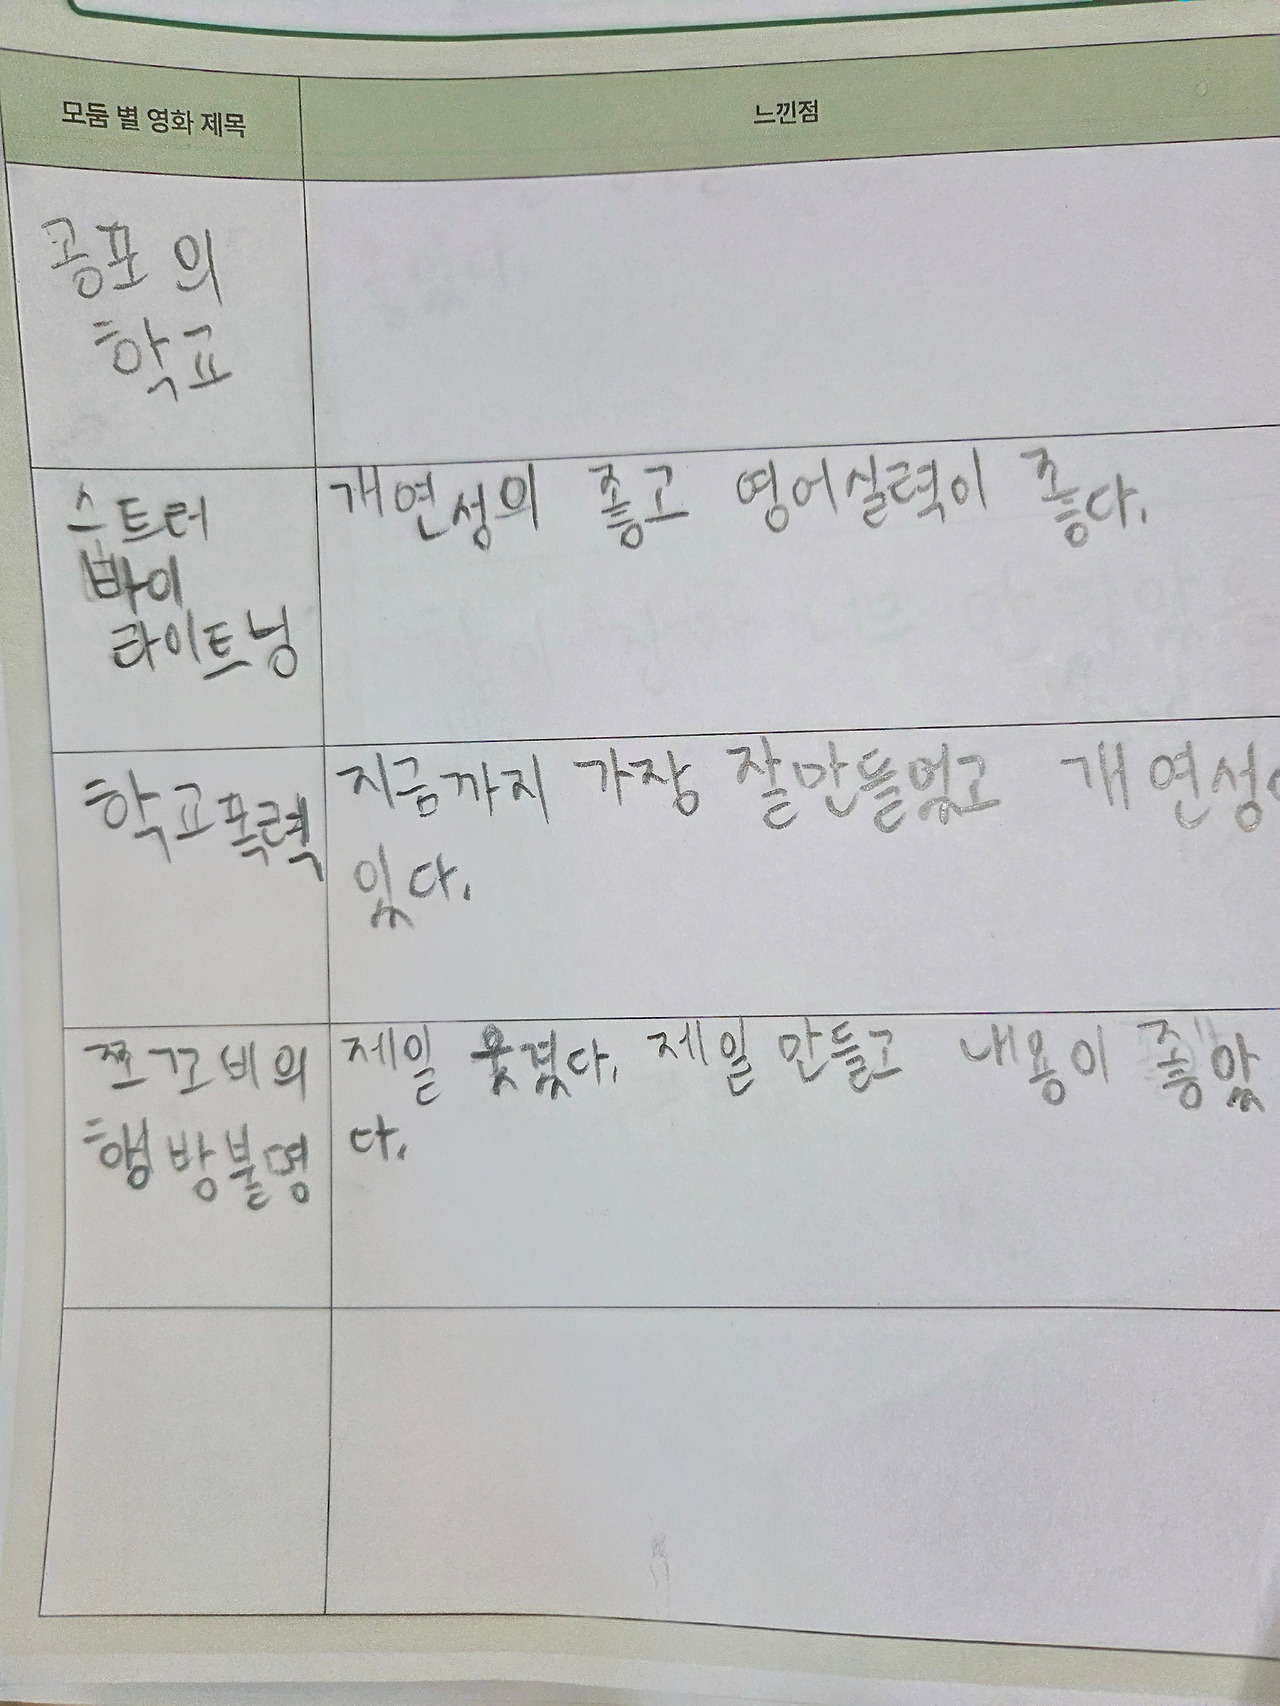 모둠 별 영화 제목
느낀점
공포의
학교
스트러
바이
라이트닝
개연성의 좋고 영어실력이 좋다.
학교폭력
지금까지 가장 잘만들었고 개연성
있다.
쪼꼬비의
행방불명
제일 웃겼다. 제일 만들고 내용이 좋았
다.